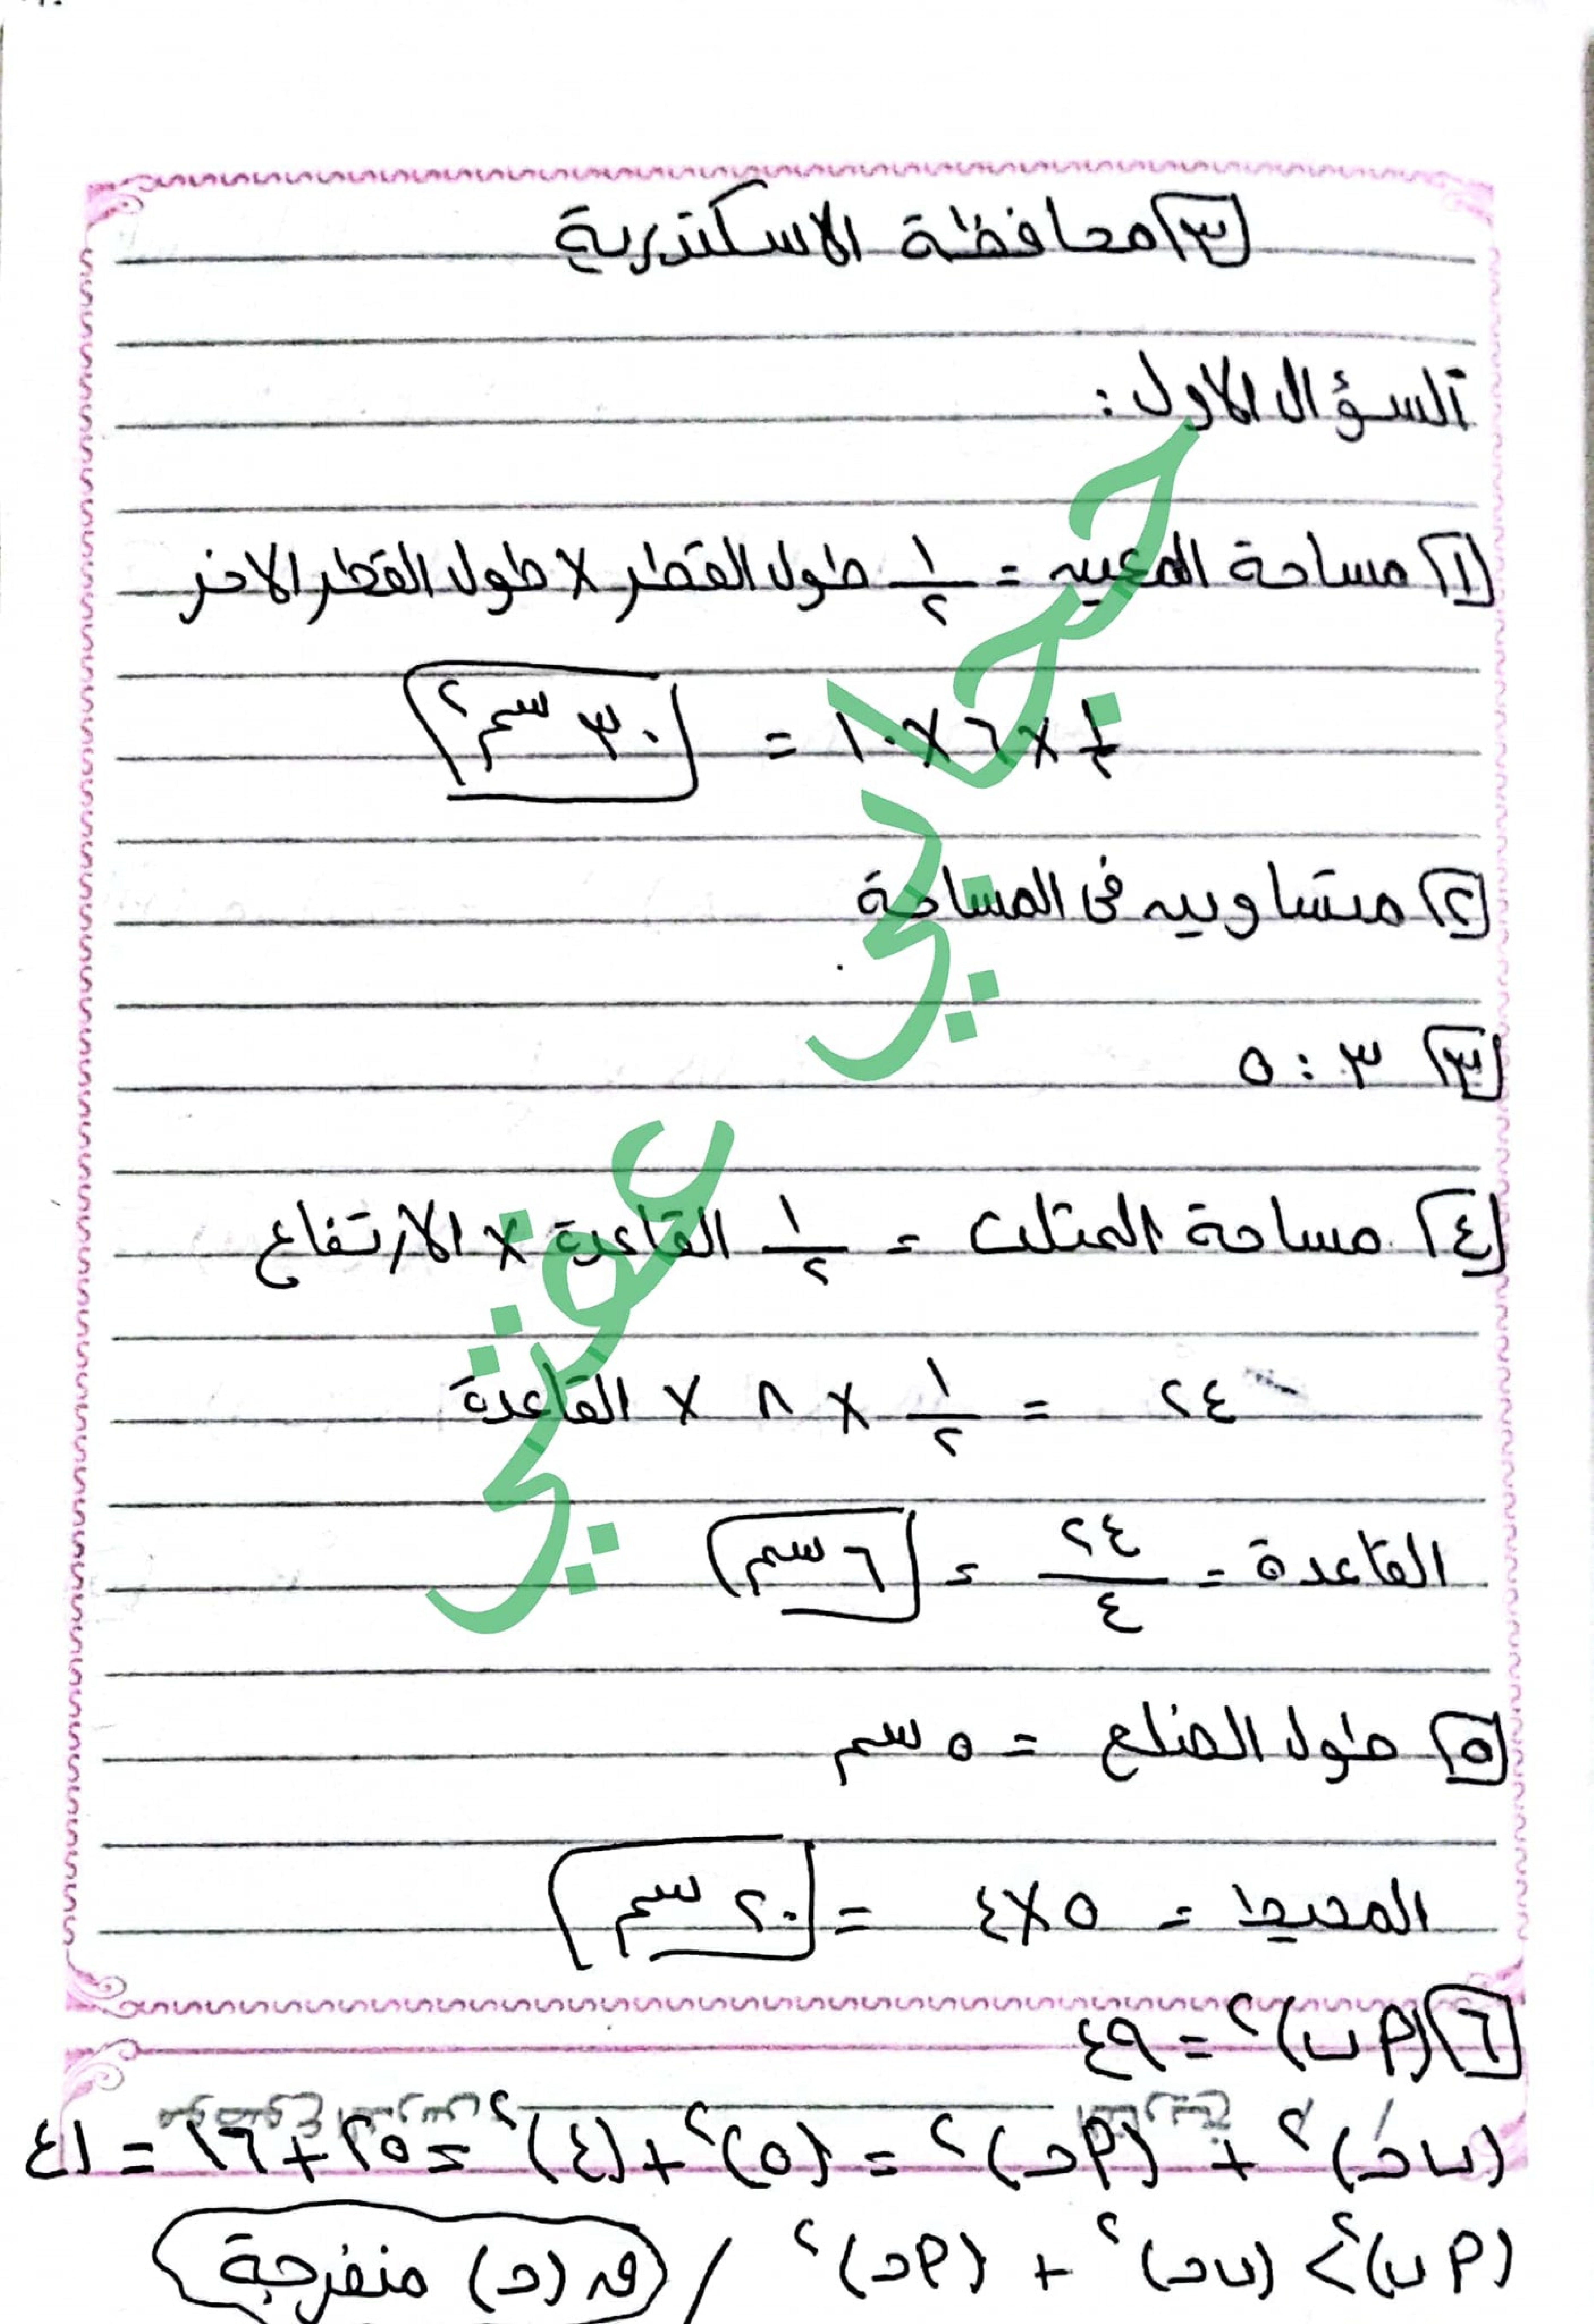 ٣ محافظة الاسكندرية
السؤال الاول :
١ مساحة المعين = ١/٢ طول القطر × طول القطر الاخر
١/٢ × ٦ × ١٠ = ٣٠ سم٢
٢ متساويين فى المساحة
٣ ٣ : ٥
٤ مساحة المثلث = ١/٢ القاعدة × الارتفاع
٢٤ = ١/٢ × ٨ × القاعدة
القاعدة = ٢٤/٤ = ٦ سم
٥ طول الضلع = ٥ سم
المحيط = ٥ × ٤ = ٢٠ سم
٦ (أ ب)٢ = ٤٩
(ب حـ)٢ + (أ حـ)٢ = (٥)٢ + (٤)٢ = ٢٥ + ١٦ = ٤١
(أ ب)٢ > (ب حـ)٢ + (أ حـ)٢ / ق (حـ) منفرجة